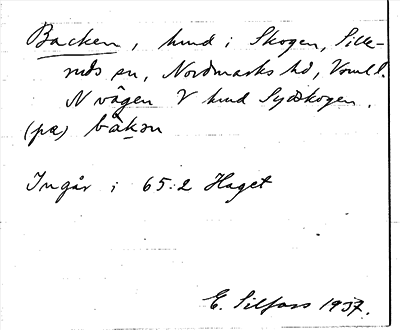 Backen, hmd i Skogen, Sille-
ruds sn, Nordmarks hd, Vrml l.
N vägen V hmd Sydskogen.
(pæ) bàkən
Ingår i 65:2 Haget
E. Silfors 1937.